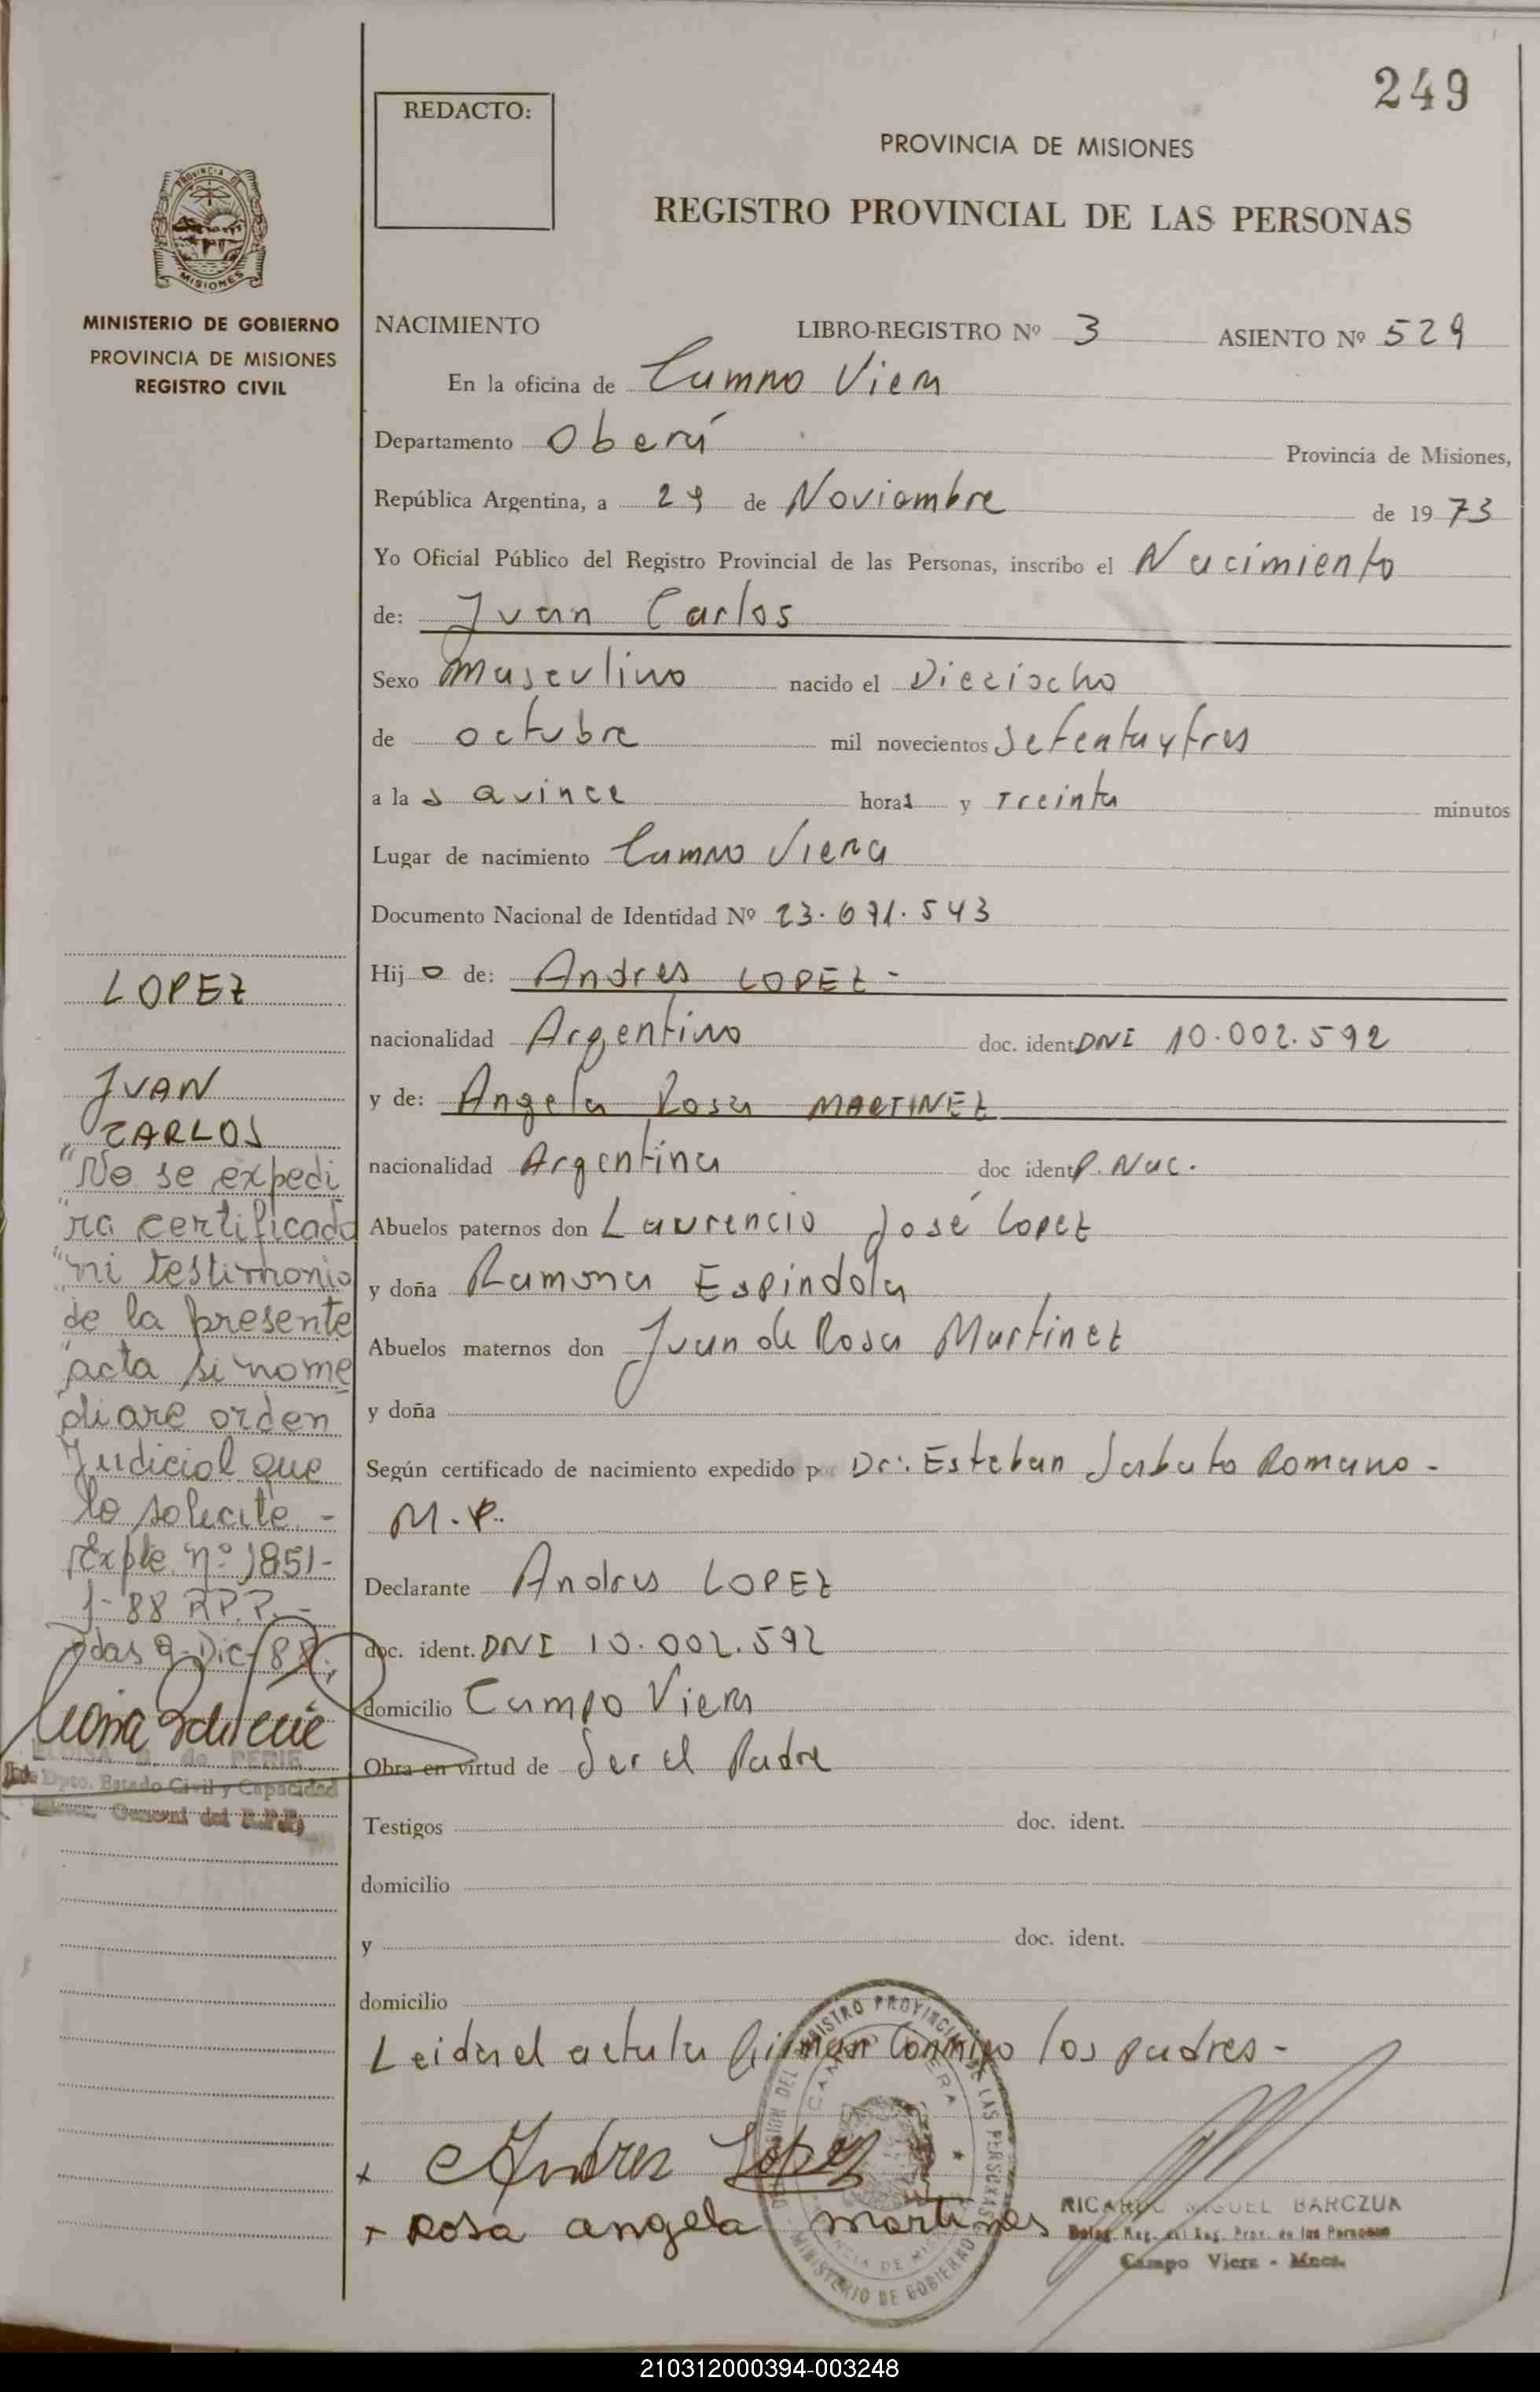 249
REDACTO:
PROVINCIA DE MISIONES
REGISTRO PROVINCIAL DE LAS PERSONAS
PROVINCIA DE
MISIONES
MINISTERIO DE GOBIERNO
PROVINCIA DE MISIONES
REGISTRO CIVIL
NACIMIENTO LIBRO-REGISTRO Nº 3 ASIENTO Nº 529
En la oficina de Campo Viera
Departamento Oberá Provincia de Misiones,
República Argentina, a 29 de Noviembre de 1973
Yo Oficial Público del Registro Provincial de las Personas, inscribo el Nacimiento
de: Juan Carlos
Sexo Masculino nacido el Dieciocho
de octubre mil novecientos setenta y tres
a la s Quince horas y Treinta minutos
Lugar de nacimiento Campo Viera
Documento Nacional de Identidad Nº 23.671.543
Hij o de: Andres LOPEZ -
nacionalidad Argentino doc. ident DNI 10.002.592
y de: Angela Rosa MARTINEZ
nacionalidad Argentina doc ident P. Nac.
Abuelos paternos don Laurencio José Lopez
y doña Ramona Espindola
Abuelos maternos don Juan de Rosa Martinez
y doña
Según certificado de nacimiento expedido por Dr: Esteban Romano -
M.P.
Declarante Andres LOPEZ
doc. ident. DNI 10.002.592
domicilio Campo Viera
Obra en virtud de Ser el Padre
Testigos doc. ident.
domicilio
y doc. ident.
domicilio
Leida el acta la firman conmigo los padres -
x Andres Lopez
x Rosa angela martines
RICARDO MIGUEL BARCZUK
Deleg. Reg. del Reg. Prov. de las Personas
Campo Viera - Mnes.
REGISTRO PROVINCIAL DE LAS PERSONAS
CAMPO VIERA
PROVINCIA DE MISIONES
MINISTERIO DE GOBIERNO
LOPEZ
JUAN
CARLOS
"No se expedi
"ra certificado
"ni testimonio
de la presente
acta si no me
diare orden
Judicial que
lo solicite. -
Expte. nº 1851-
J-88 R.P.P. -
Pdas 9-Dic-/88.
de PERIE
Dpto. Estado Civil y Capacidad
General del R.P.P.
210312000394-003248